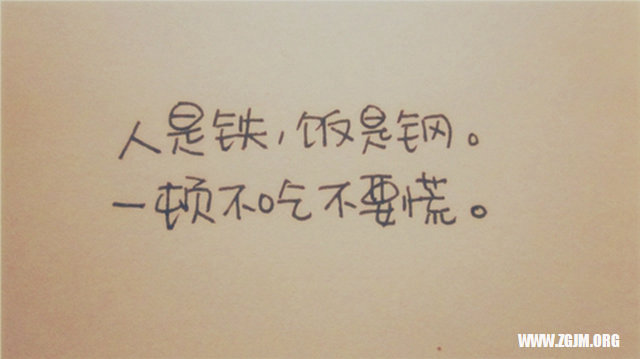 人是铁,饭是钢。
一顿不吃不要慌。
WWW.ZGJM.ORG